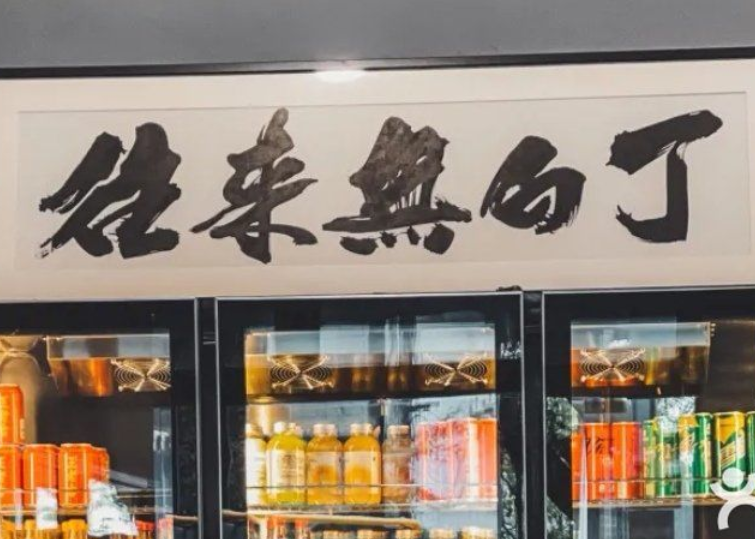 往来無白丁